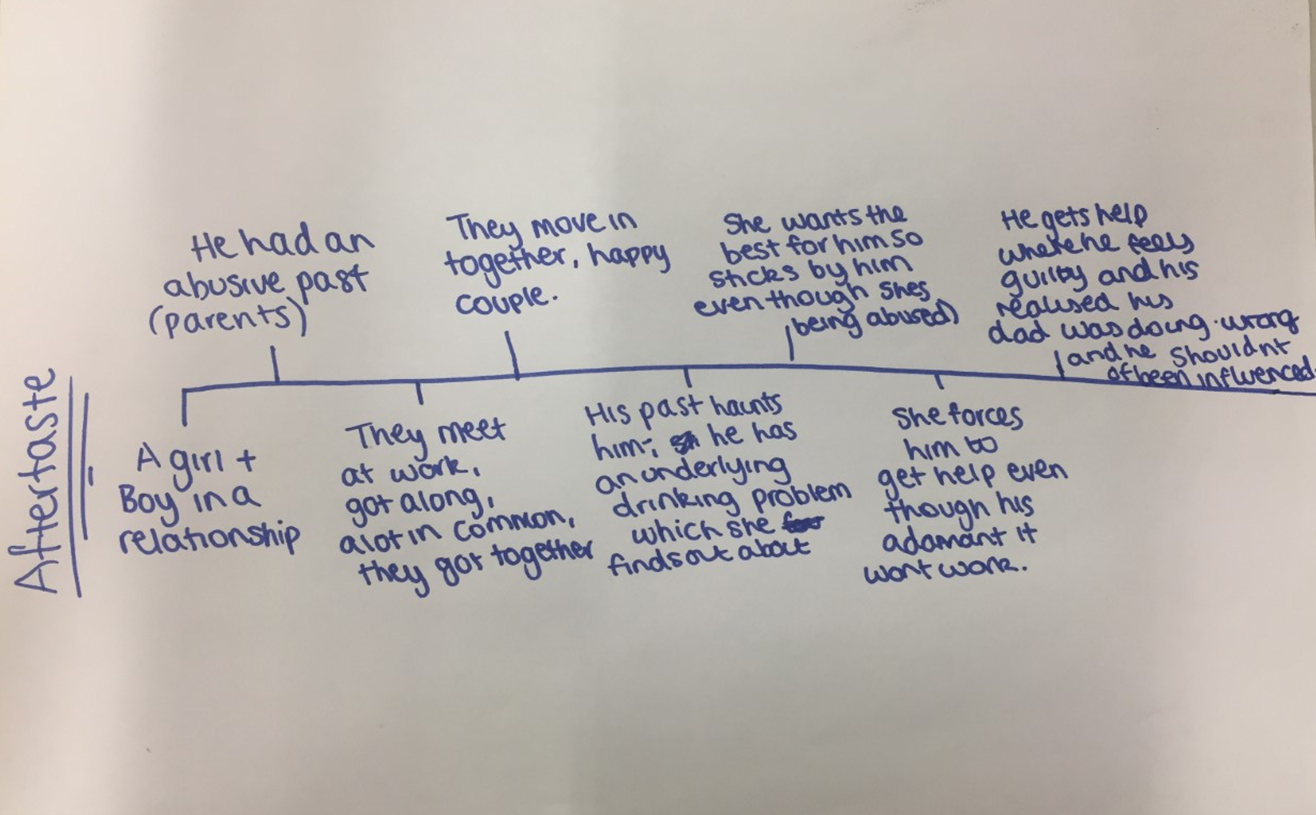 Aftertaste
A girl +
Boy in a
relationship
He had an
abusive past
(parents)
They meet
at work,
got along,
alot in common,
they got together
They move in
together, happy
couple.
His past haunts
him; he has
an underlying
drinking problem
which she
finds out about
She wants the
best for him so
sticks by him
even though shes
being abused)
She forces
him to
get help even
though his
adamant it
wont work.
He gets help
where he feels
guilty and his
realised his
dad was doing wrong
and he shouldnt
of been influenced.